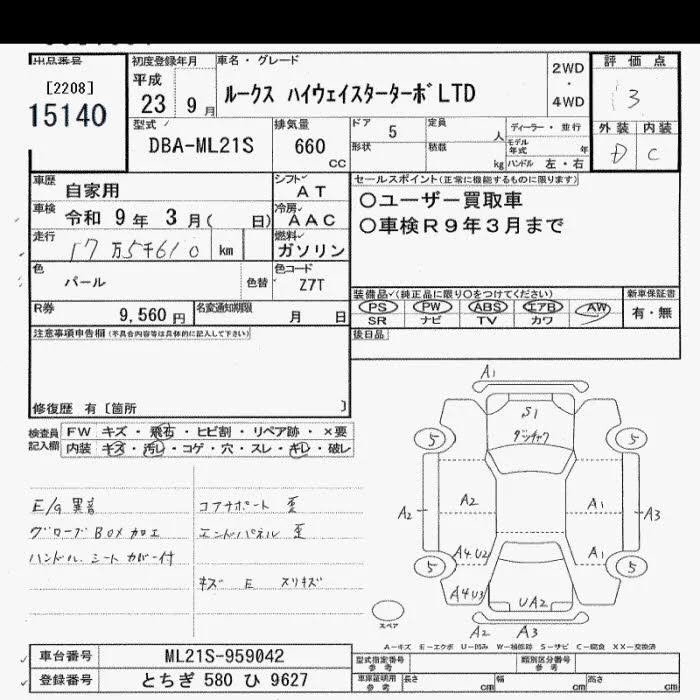 出品番号
[2208]
15140
初度登録年月
平成
23年 9月
車名・グレード
ルークス ハイウェイスターターボLTD
2WD
・
4WD
評価点
3
外装 内装
D C
型式
DBA-ML21S
排気量
660
CC
ドア
5
定員
人
形状
積載
kg
ディーラー・並行
モデル年式 年
ハンドル 左・右
車歴
自家用
シフト
AT
車検
令和 9年 3月( 日)
冷房
AAC
走行
17万5千610 km
燃料
ガソリン
色
パール
色替
色コード
Z7T
R券
9,560円
名変通知期限
月 日
セールスポイント(正常に機能するものに限ります)
○ユーザー買取車
○車検R9年3月まで
装備品(純正品に限り○をつけてください)
PS PW ABS エアB AW
SR ナビ TV カワ
新車保証書
有・無
後日品
注意事項申告欄(不具合内容等は具体的に記入して下さい)
修復歴 有〔箇所 〕
検査員記入欄
FW キズ・飛石・ヒビ割・リペア跡・×要
内装 キズ・汚レ・コゲ・穴・スレ・キレ・破レ
E/g異音
グローブBOX加工
ハンドル.シートカバー付
コアサポート 歪
エンドパネル 歪
キズ E スリキズ
A1
S1
ダッチャク
5
5
A2
A2
A1
A3
A4 U2
A1
5
5
A4 U3
UA2
A2
A3
スペア
A-キズ E-エクボ U-凹み W-補修跡 S-サビ C-腐食 XX-交換済
車台番号
ML21S-959042
登録番号
とちぎ 580 ひ 9627
型式指定番号
参考
類別区分番号
参考
車庫証明用
参考
長さ cm
幅 cm
高さ cm